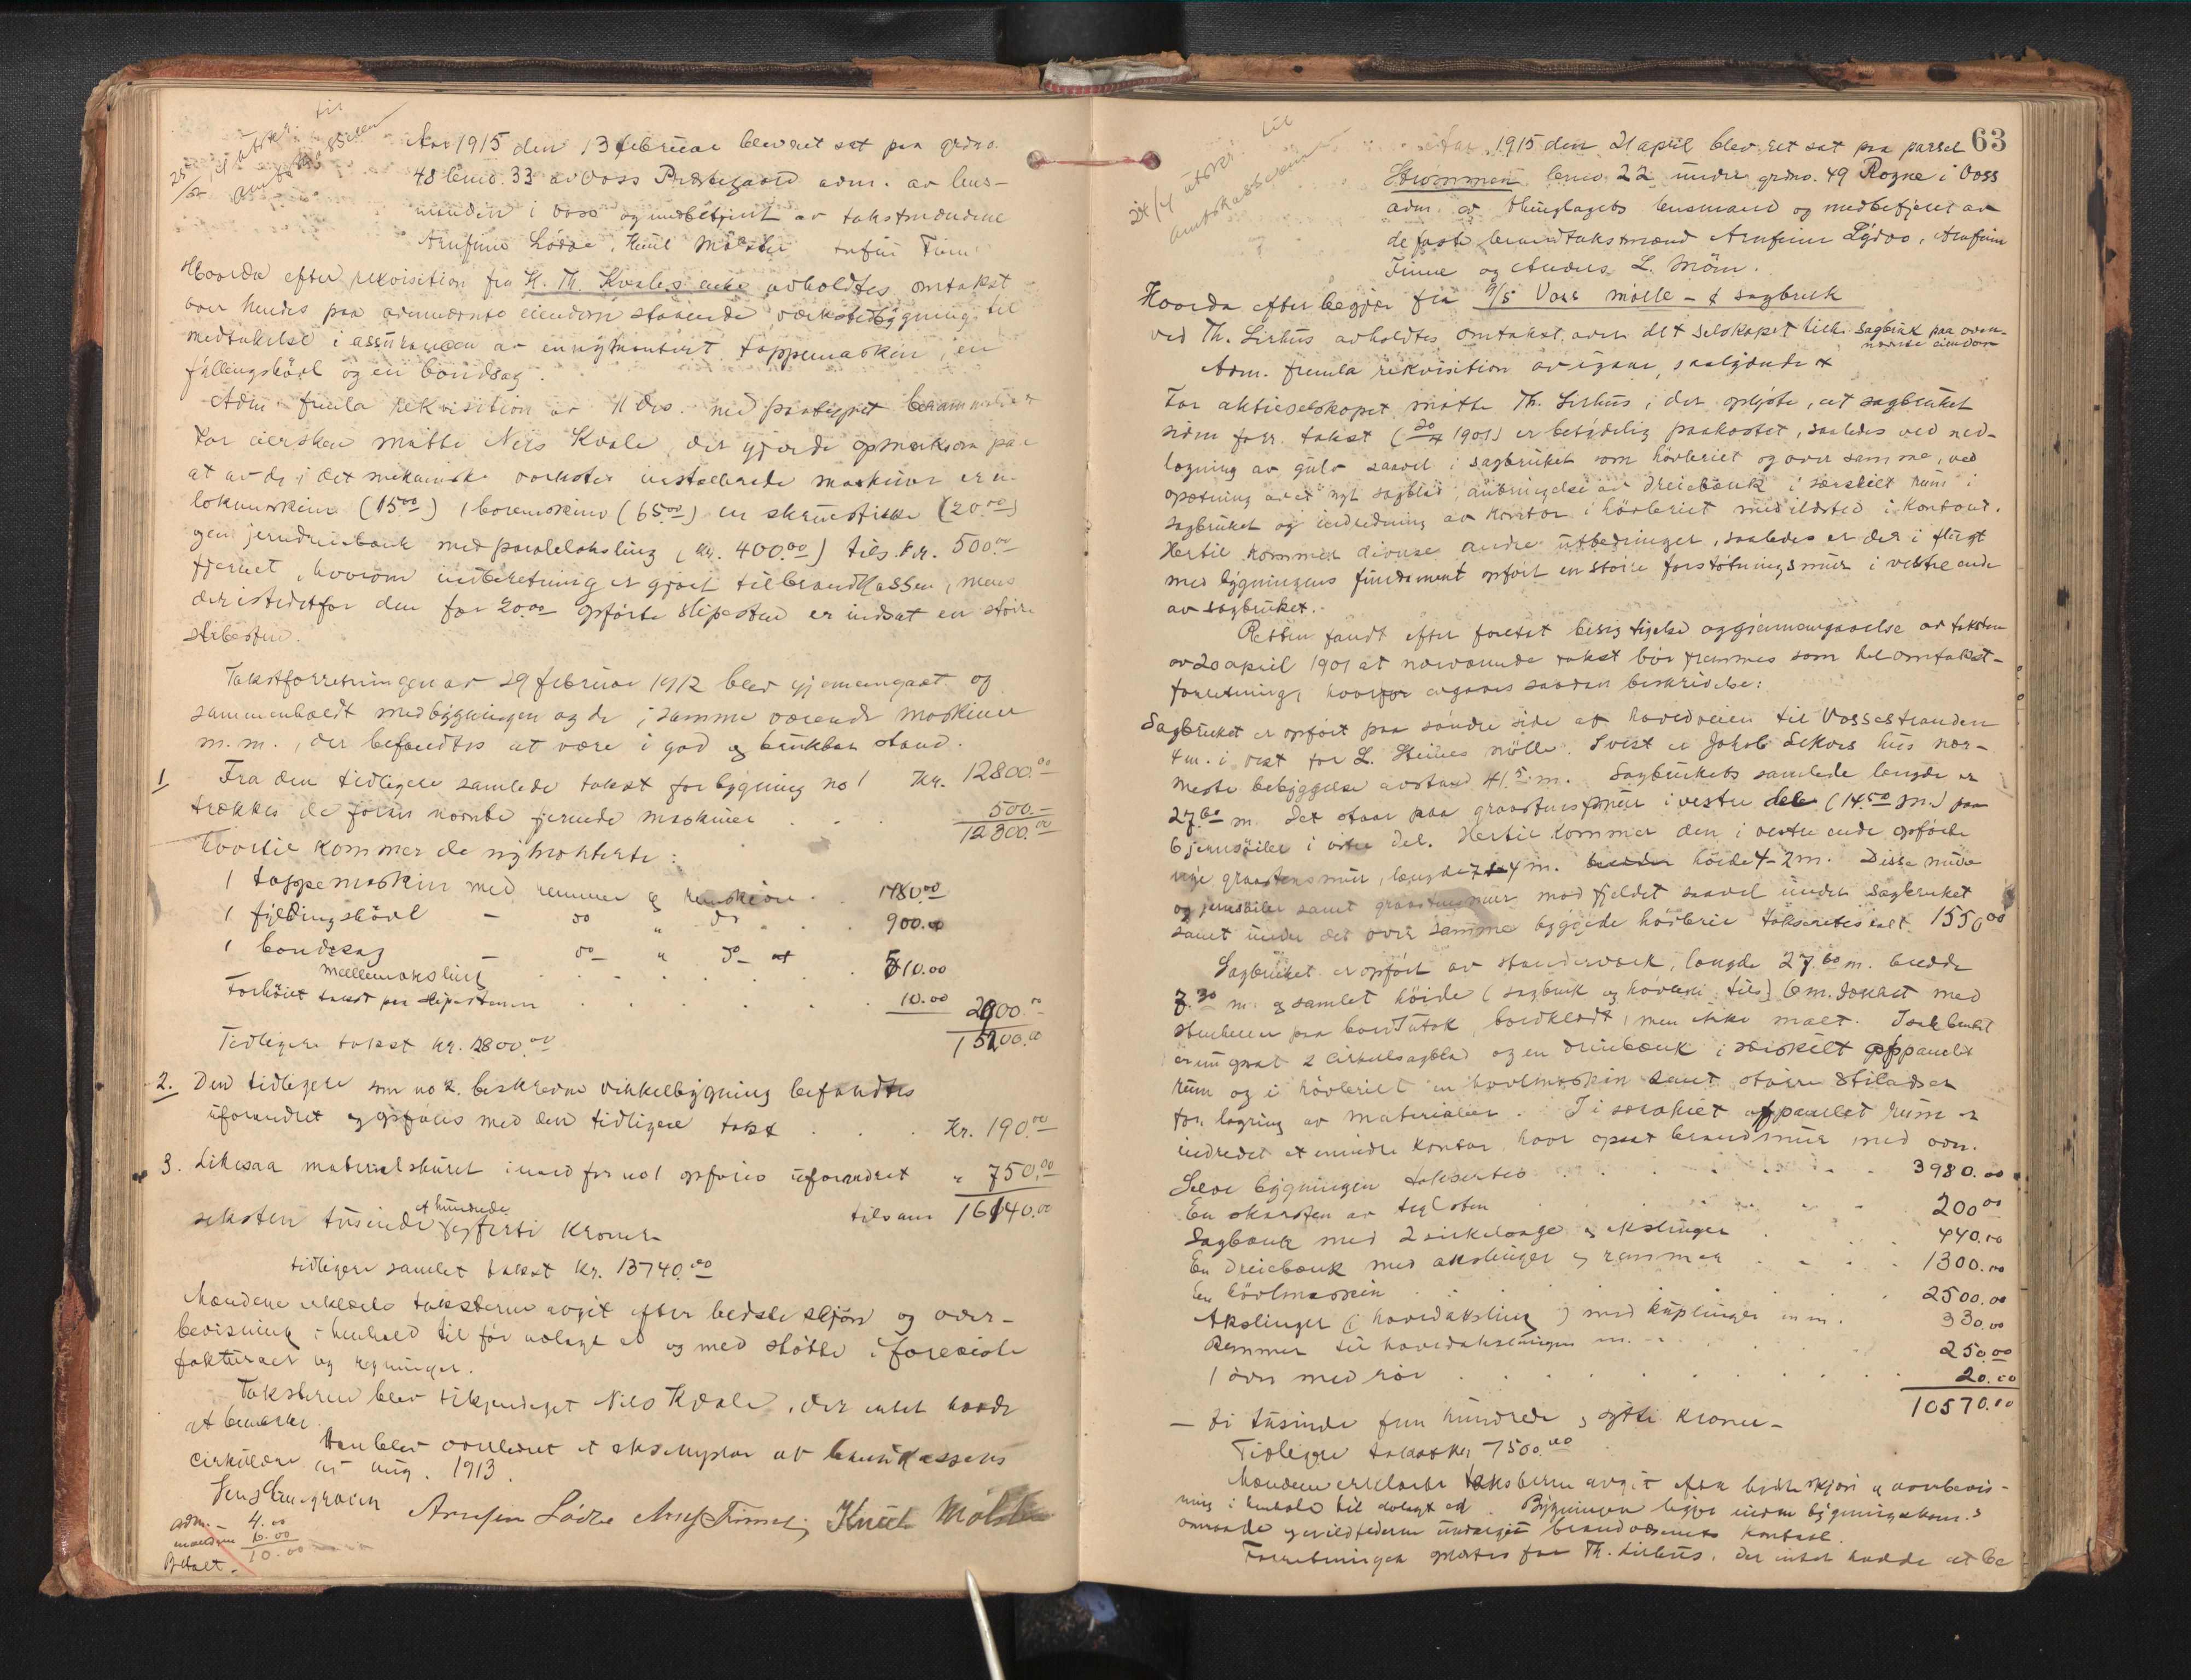 til
25/2 utskr.
Aar 1915 den 13 februar blev ret sat paa grdno.
48 brno. 33 av Voss Prestegaard adm. av lens-
manden i Voss og medbetjent av takstmændene
Arnfinn Lödve, Knut Mölster Finne
Hvorda efter rekvisition fra K. Th. Kvales enke avholdtes omtakst
over hendes paa ovennævnte eiendom staaende verkstedbygning til
medtakelse i assuransen av en nymontert tappemaskin, en
fyllingshövl og en bandsag.
Adm. fremla rekvisition av 11 ds. med paategnet berammelse
For eiersken mötte Nils Kvale, der gjorde opmerksom paa
at av de i det mekaniske verksted installerede maskiner er en
lokmaskin (15.00) 1 boremaskine (65.00) en skruestikke (20.00)
gen. jerndreiebænk med paralelaksling (Kr. 400.00) tils. kr. 500.00
fjernet, hvorom indberetning er gjort til brandkassen, mens
der istedetfor den for 20.00 opförte slipesten er indsat en större
slibesten.
Takstforretningen av 29 februar 1912 blev gjennemgaat og
sammenholdt med bygningen og de i samme værende maskiner
m.m., der befandtes at være i god og brukbar stand.
1 Fra den tidligere samlede takst for bygning no 1 Kr. 12800.00
trækkes de foran nævnte fjernede maskiner . . . 500.-
12300.00
hvortil kommer de nymonterte:
1 tappemaskin med remmer og . . 1480.00
1 fyldingshövl - do " do . . . 900.00
1 bandsag - do " do
mellemaksling . . . . . 510.00
Forhöiet takst paa slipestenen . . . . . 10.00 2900.00
Tidligere takst kr. 12800.00 15200.00
2. Den tidligere som no 2. beskrevne vinkelbygning befandtes
uforandret og opföres med den tidligere takst . . . Kr. 190.00
3. Likesaa materialskuret indenfor no 1 opföres uforandret " 750.00
tilsam 16140.00
seksten tusinde et hundrede og forti Kroner-
tidligere samlet takst kr. 13740.00
Mændene erklærte taksterne avgit efter bedste skjön og over-
bevisning i henhold til för avlagt ed og med stötte i foreviste
fakturaer og regninger.
Taksterne blev tilkjendegit Nils Kvale, der intet havde
at bemerke.
Han blev overleveret et eksemplar av brandkassens
cirkulære av aug. 1913.
Arnfin Lödve Arnf Finne Knut Mölster
adm. - 4.00
mændene 6.00
10.00
Betalt.
63
til
24/4 utskr.
amtskassereren
Aar 1915 den 21 april blev ret sat paa parsel
Strömmen brno. 22 under grdno. 49 Rogne i Voss
adm. av thinglagets lensmand og medbetjent av
de faste brandtakstmænd Arnfinn Lödve, Arnfinn
Finne og Anders L. Mön.
Hvorda efter begjær fra A/S Voss mölle- & sagbruk
ved Th. Lirhus avholdtes omtakst over det selskapet tilh. sagbruk paa oven-
nævnte eiendom
Adm. fremla rekvisition av igaar, saalydende
For aktieselskapet mötte Th. Lirhus, der oplyste, at sagbruket
siden forr. takst (20/4 1901) er betydelig paakostet, saaledes ved ned-
lægning av gulv saavel i sagbruket som hövleriet og over samme, ved
opsætning av et nyt sagblad, anbringelse av dreiebænk i særskilt rum i
sagbruket og indredning av kontor i hövleriet med ildsted i kontoret.
Hertil kommer diverse andre utbedringer, saaledes er der i flugt
med bygningens fundament opfört en större forstötningsmur i vestre ende
av sagbruket.
Retten fandt efter foretat besigtigelse og gjennemgaaelse av taksten
av 20 april 1901 at nærværende takst bör fremmes som hel omtakst-
forretning, hvorfor avgaves saadan beskrivelse:
Sagbruket er opfört paa söndre side av hovedveien til Vossestranden
4 m. i vest for L. Heines mölle. I vest er Jakob Sekves hus nær-
meste bebyggelse avstand 41.5 m. Sagbrukets samlede længde er
27.60 m. Det staar paa graastensmur i vestre del (14.50 m.) paa
6 jernsöiler i östre del. Hertil kommer den i vestre ende opförte
nye graastensmur, længde 7.4 m. höide 4-2 m. Disse mure
og jernsöiler samt graastensmur mod fjeldet saavel under sagbruket
samt under det over samme byggede hövleri takseres ialt 1550.00
Sagbruket er opfört av standerverk, længde 27.60 m. bredde
7.30 m. og samlet höide (sagbruk og hövleri tils) 6 m. tækket med
stenheller paa bordtutak, bordklædt, men ikke malt. I sagbruket
er indsat 2 cirkelsagblad og en dreiebænk i særskilt oppanelt
rum og i hövleriet en hövlmaskin samt större stiladser
for lagring av materialier. I i særskilt oppanelet rum er
indredet et mindre kontor, hvor opsat brandmur med ovn.
Selve bygningen takseres . . . . . . . 3980.00
En skorsten av teglsten . . . . . . 200.00
Sagbænk med 2 cirkelsage og akslinger . . . 440.00
En dreiebænk med akslinger og remmer . . . . 1300.00
En hövlmaskin . . . . . . . 2500.00
Akslinger (hovedaksling) med kuplinger m.m. . 330.00
Remmer til hovedakslingen m. . . . . 250.00
1 ovn med rör . . . . . . . . 20.00
10570.00
- ti tusinde fem hundrede og sytti kroner -
Tidligere takst kr. 7500.00
Mændene erklærte taksterne avgit efter bedste skjön og overbevis-
ning i henhold til avlagt ed. Bygningen ligger inden bygningskom.s
omraade og er ildstederne undergit brandvæsenets kontrol.
Forretningen oplæstes for Th. Lirhus, der intet hadde at be